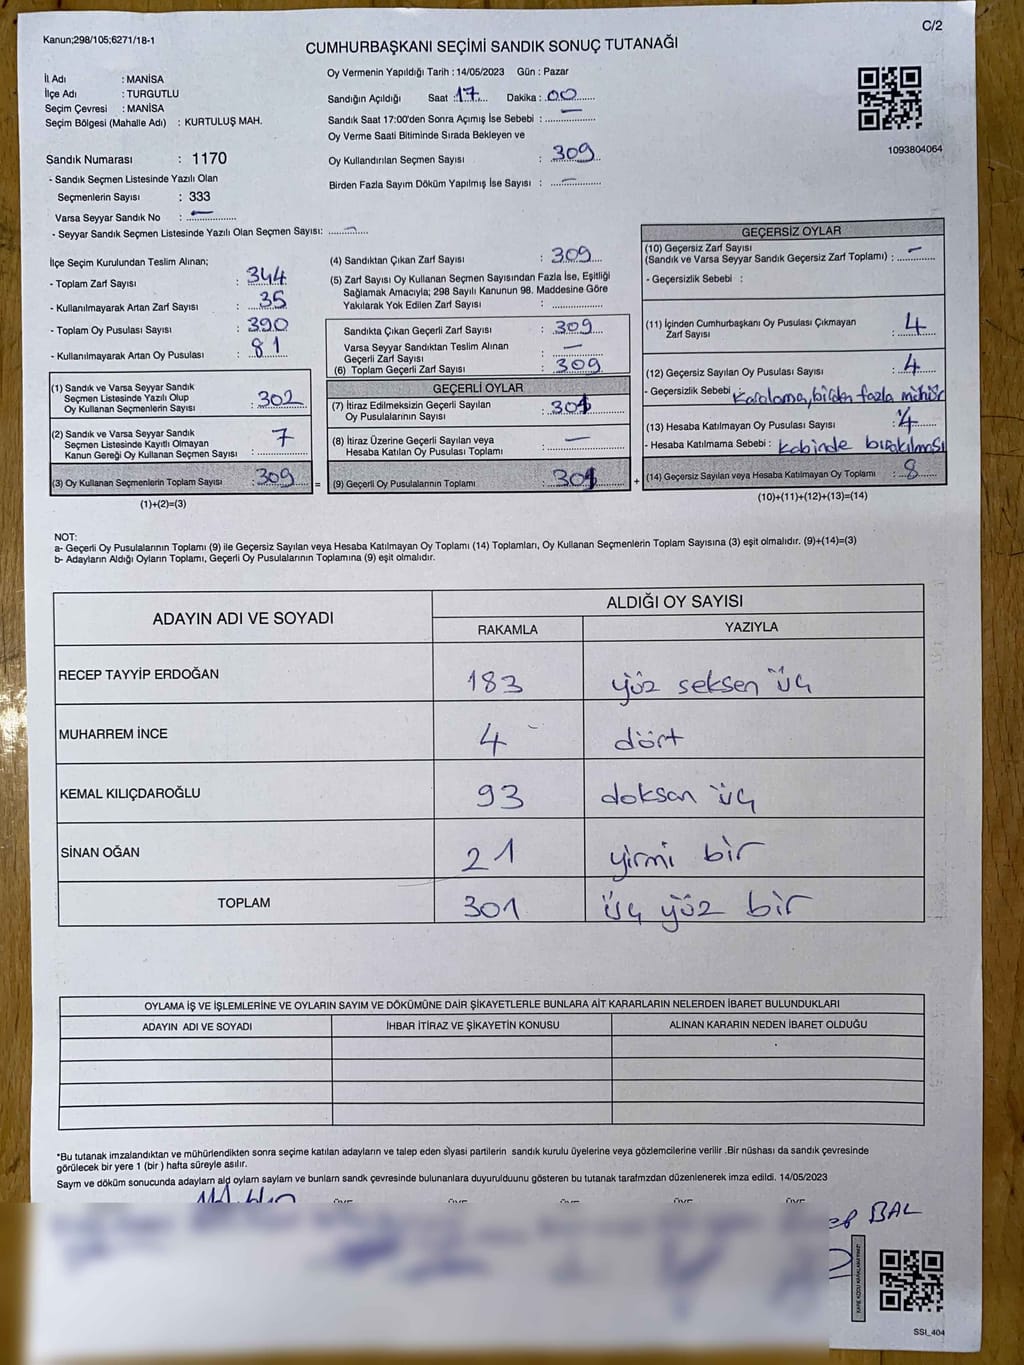 Kanun;298/105;6271/18-1
C/2
CUMHURBAŞKANI SEÇİMİ SANDIK SONUÇ TUTANAĞI
İl Adı : MANİSA
İlçe Adı : TURGUTLU
Seçim Çevresi : MANİSA
Seçim Bölgesi (Mahalle Adı) : KURTULUŞ MAH.
Sandık Numarası : 1170
- Sandık Seçmen Listesinde Yazılı Olan
Seçmenlerin Sayısı : 333
Varsa Seyyar Sandık No : —
- Seyyar Sandık Seçmen Listesinde Yazılı Olan Seçmen Sayısı: —
Oy Vermenin Yapıldığı Tarih : 14/05/2023 Gün : Pazar
Sandığın Açıldığı Saat : 17 Dakika : 00
Sandık Saat 17:00'den Sonra Açımış İse Sebebi : —
Oy Verme Saati Bitiminde Sırada Bekleyen ve
Oy Kullandırılan Seçmen Sayısı : 309
Birden Fazla Sayım Döküm Yapılmış İse Sayısı : —
1093804064
İlçe Seçim Kurulundan Teslim Alınan;
- Toplam Zarf Sayısı : 344
- Kullanılmayarak Artan Zarf Sayısı : 35
- Toplam Oy Pusulası Sayısı : 390
- Kullanılmayarak Artan Oy Pusulası : 81
(1) Sandık ve Varsa Seyyar Sandık
Seçmen Listesinde Yazılı Olup
Oy Kullanan Seçmenlerin Sayısı : 302
(2) Sandık ve Varsa Seyyar Sandık
Seçmen Listesinde Kayıtlı Olmayan
Kanun Gereği Oy Kullanan Seçmen Sayısı : 7
(3) Oy Kullanan Seçmenlerin Toplam Sayısı : 309
(1)+(2)=(3)
(4) Sandıktan Çıkan Zarf Sayısı : 309
(5) Zarf Sayısı Oy Kullanan Seçmen Sayısından Fazla İse, Eşitliği
Sağlamak Amacıyla; 298 Sayılı Kanunun 98. Maddesine Göre
Yakılarak Yok Edilen Zarf Sayısı :
Sandıkta Çıkan Geçerli Zarf Sayısı : 309
Varsa Seyyar Sandıktan Teslim Alınan
Geçerli Zarf Sayısı : —
(6) Toplam Geçerli Zarf Sayısı : 309
GEÇERLİ OYLAR
(7) İtiraz Edilmeksizin Geçerli Sayılan
Oy Pusulalarının Sayısı : 301
(8) İtiraz Üzerine Geçerli Sayılan veya
Hesaba Katılan Oy Pusulası Toplamı : —
= (9) Geçerli Oy Pusulalarının Toplamı : 301 +
GEÇERSİZ OYLAR
(10) Geçersiz Zarf Sayısı
(Sandık ve Varsa Seyyar Sandık Geçersiz Zarf Toplamı) : —
- Geçersizlik Sebebi :
(11) İçinden Cumhurbaşkanı Oy Pusulası Çıkmayan
Zarf Sayısı : 4
(12) Geçersiz Sayılan Oy Pusulası Sayısı : 4
- Geçersizlik Sebebi : Karalama, birden fazla mühür
(13) Hesaba Katılmayan Oy Pusulası Sayısı :
- Hesaba Katılmama Sebebi : kabinde bırakılması
(14) Geçersiz Sayılan veya Hesaba Katılmayan Oy Toplamı : 8
(10)+(11)+(12)+(13)=(14)
NOT:
a- Geçerli Oy Pusulalarının Toplamı (9) ile Geçersiz Sayılan veya Hesaba Katılmayan Oy Toplamı (14) Toplamları, Oy Kullanan Seçmenlerin Toplam Sayısına (3) eşit olmalıdır. (9)+(14)=(3)
b- Adayların Aldığı Oyların Toplamı, Geçerli Oy Pusulalarının Toplamına (9) eşit olmalıdır.
ADAYIN ADI VE SOYADI ALDIĞI OY SAYISI
RAKAMLA YAZIYLA
RECEP TAYYİP ERDOĞAN 183 yüz seksen üç
MUHARREM İNCE 4 dört
KEMAL KILIÇDAROĞLU 93 doksan üç
SİNAN OĞAN 21 yirmi bir
TOPLAM 301 üç yüz bir
OYLAMA İŞ VE İŞLEMLERİNE VE OYLARIN SAYIM VE DÖKÜMÜNE DAİR ŞİKAYETLERLE BUNLARA AİT KARARLARIN NELERDEN İBARET BULUNDUKLARI
ADAYIN ADI VE SOYADI İHBAR İTİRAZ VE ŞİKAYETİN KONUSU ALINAN KARARIN NEDEN İBARET OLDUĞU
*Bu tutanak imzalandıktan ve mühürlendikten sonra seçime katılan adayların ve talep eden siyasi partilerin sandık kurulu üyelerine veya gözlemcilerine verilir .Bir nüshası da sandık çevresinde
görülecek bir yere 1 (bir ) hafta süreyle asılır.
Sayım ve döküm sonucunda adayların aldığı oyların sayısını ve bunların sandık çevresinde bulunanlara duyurulduğunu gösteren bu tutanak tarafımızdan düzenlenerek imza edildi. 14/05/2023
BAL
SSI_404